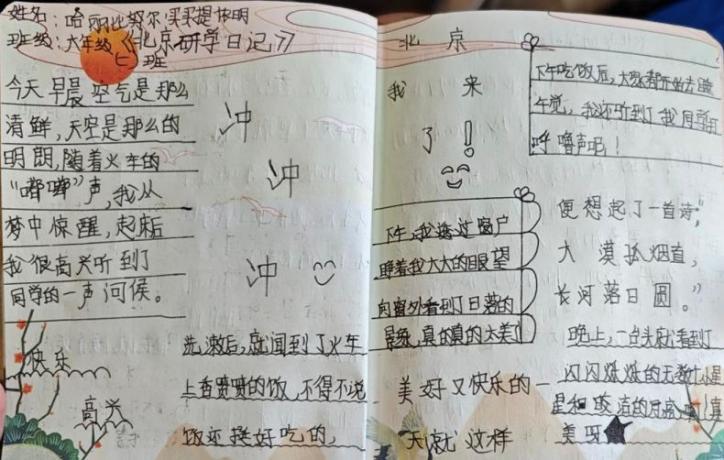 姓名:哈丽比努尔·买买提依明
班级:六年级《北京研学日记》
(七)班
今天早晨空气是那么
清鲜,天空是那么的
明朗,随着火车的
“嘟嘟”声,我从
梦中惊醒,起床后
我很高兴听到了
同学的一声问候。
冲
冲
冲
快乐
高兴
洗漱后,就闻到了火车
上香喷喷的饭,不得不说
饭还挺好吃的,
北京
我来
了!
下午吃饭后,大家都开始去睡
午觉,我还听到了我同学打
呼噜声呢!
下午,我透过窗户
睁着我大大的眼望
向窗外看到了日落的
景象,真的真的太美了
便想起了一首诗,
大漠孤烟直,
长河落日圆。”
晚上,一台头就看到了
闪闪烁烁的无数小星
星和皎洁的月亮啊!真
美呀
美好又快乐的一
天就这样